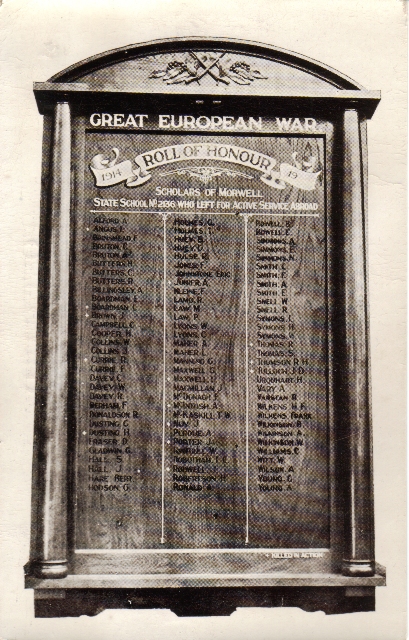 GREAT EUROPEAN WAR
ROLL OF HONOUR
1914 19
SCHOLARS OF MORWELL
STATE SCHOOL No 2136 WHO LEFT FOR ACTIVE SERVICE ABROAD
ALFORD A
ANGUS
BRINSMEAD F
BRUTON
BRUTON
BUTTERS
BUTTERS C
BUTTERS R
BILLINGSLEY A
BOARDMAN E
BOARDMAN
BROWN
CAMPBELL C
COOPER H
COLLINS W
COLLINS J
CURRIE R
CURRIE F
DAVEY C
DAVEY W
DAVEY R
DERHAM F
DONALDSON R
DUSTING C
DUSTING H
FRASER D
GLADWIN G
HALL S
HALL J
HARE BERT
HUDSON G
HOLMES
HOLMES
HUEY
HUEY
HULSE R
JONES
JOHNSTONE ERIC
JUNIER A
KLEINE F
LAMB R
LAW M
LAW F
LYONS W
LYONS C
MAHER A
MAHER L
MAXWELL
MAXWELL
MACMILLAN J
McDONAGH
McINTOSH A
McKASKILL T W
NUY J
PERDUE A
PORTER J
RINTOULL W
ROBOTHAM
RODWELL
ROBERTSON H
RONALD
ROWELL
ROWELL
SIMMONS A
SIMMONS
SIMMONS
SMITH C
SMITH F
SMITH A
SMITH E
SNELL W
SNELL R
SYMONS
SYMONS H
SYMONS
THOMAS R
THOMAS S
TULLOCH J D
URQUHART H
VARY A
VARY
WILKENS H F
WILKENS FRANK
WILKINSON B
WILKINSON A
WILKINSON W
WILLIAMS C
WITT W
WILSON A
YOUNG C
YOUNG A
KILLED IN ACTION